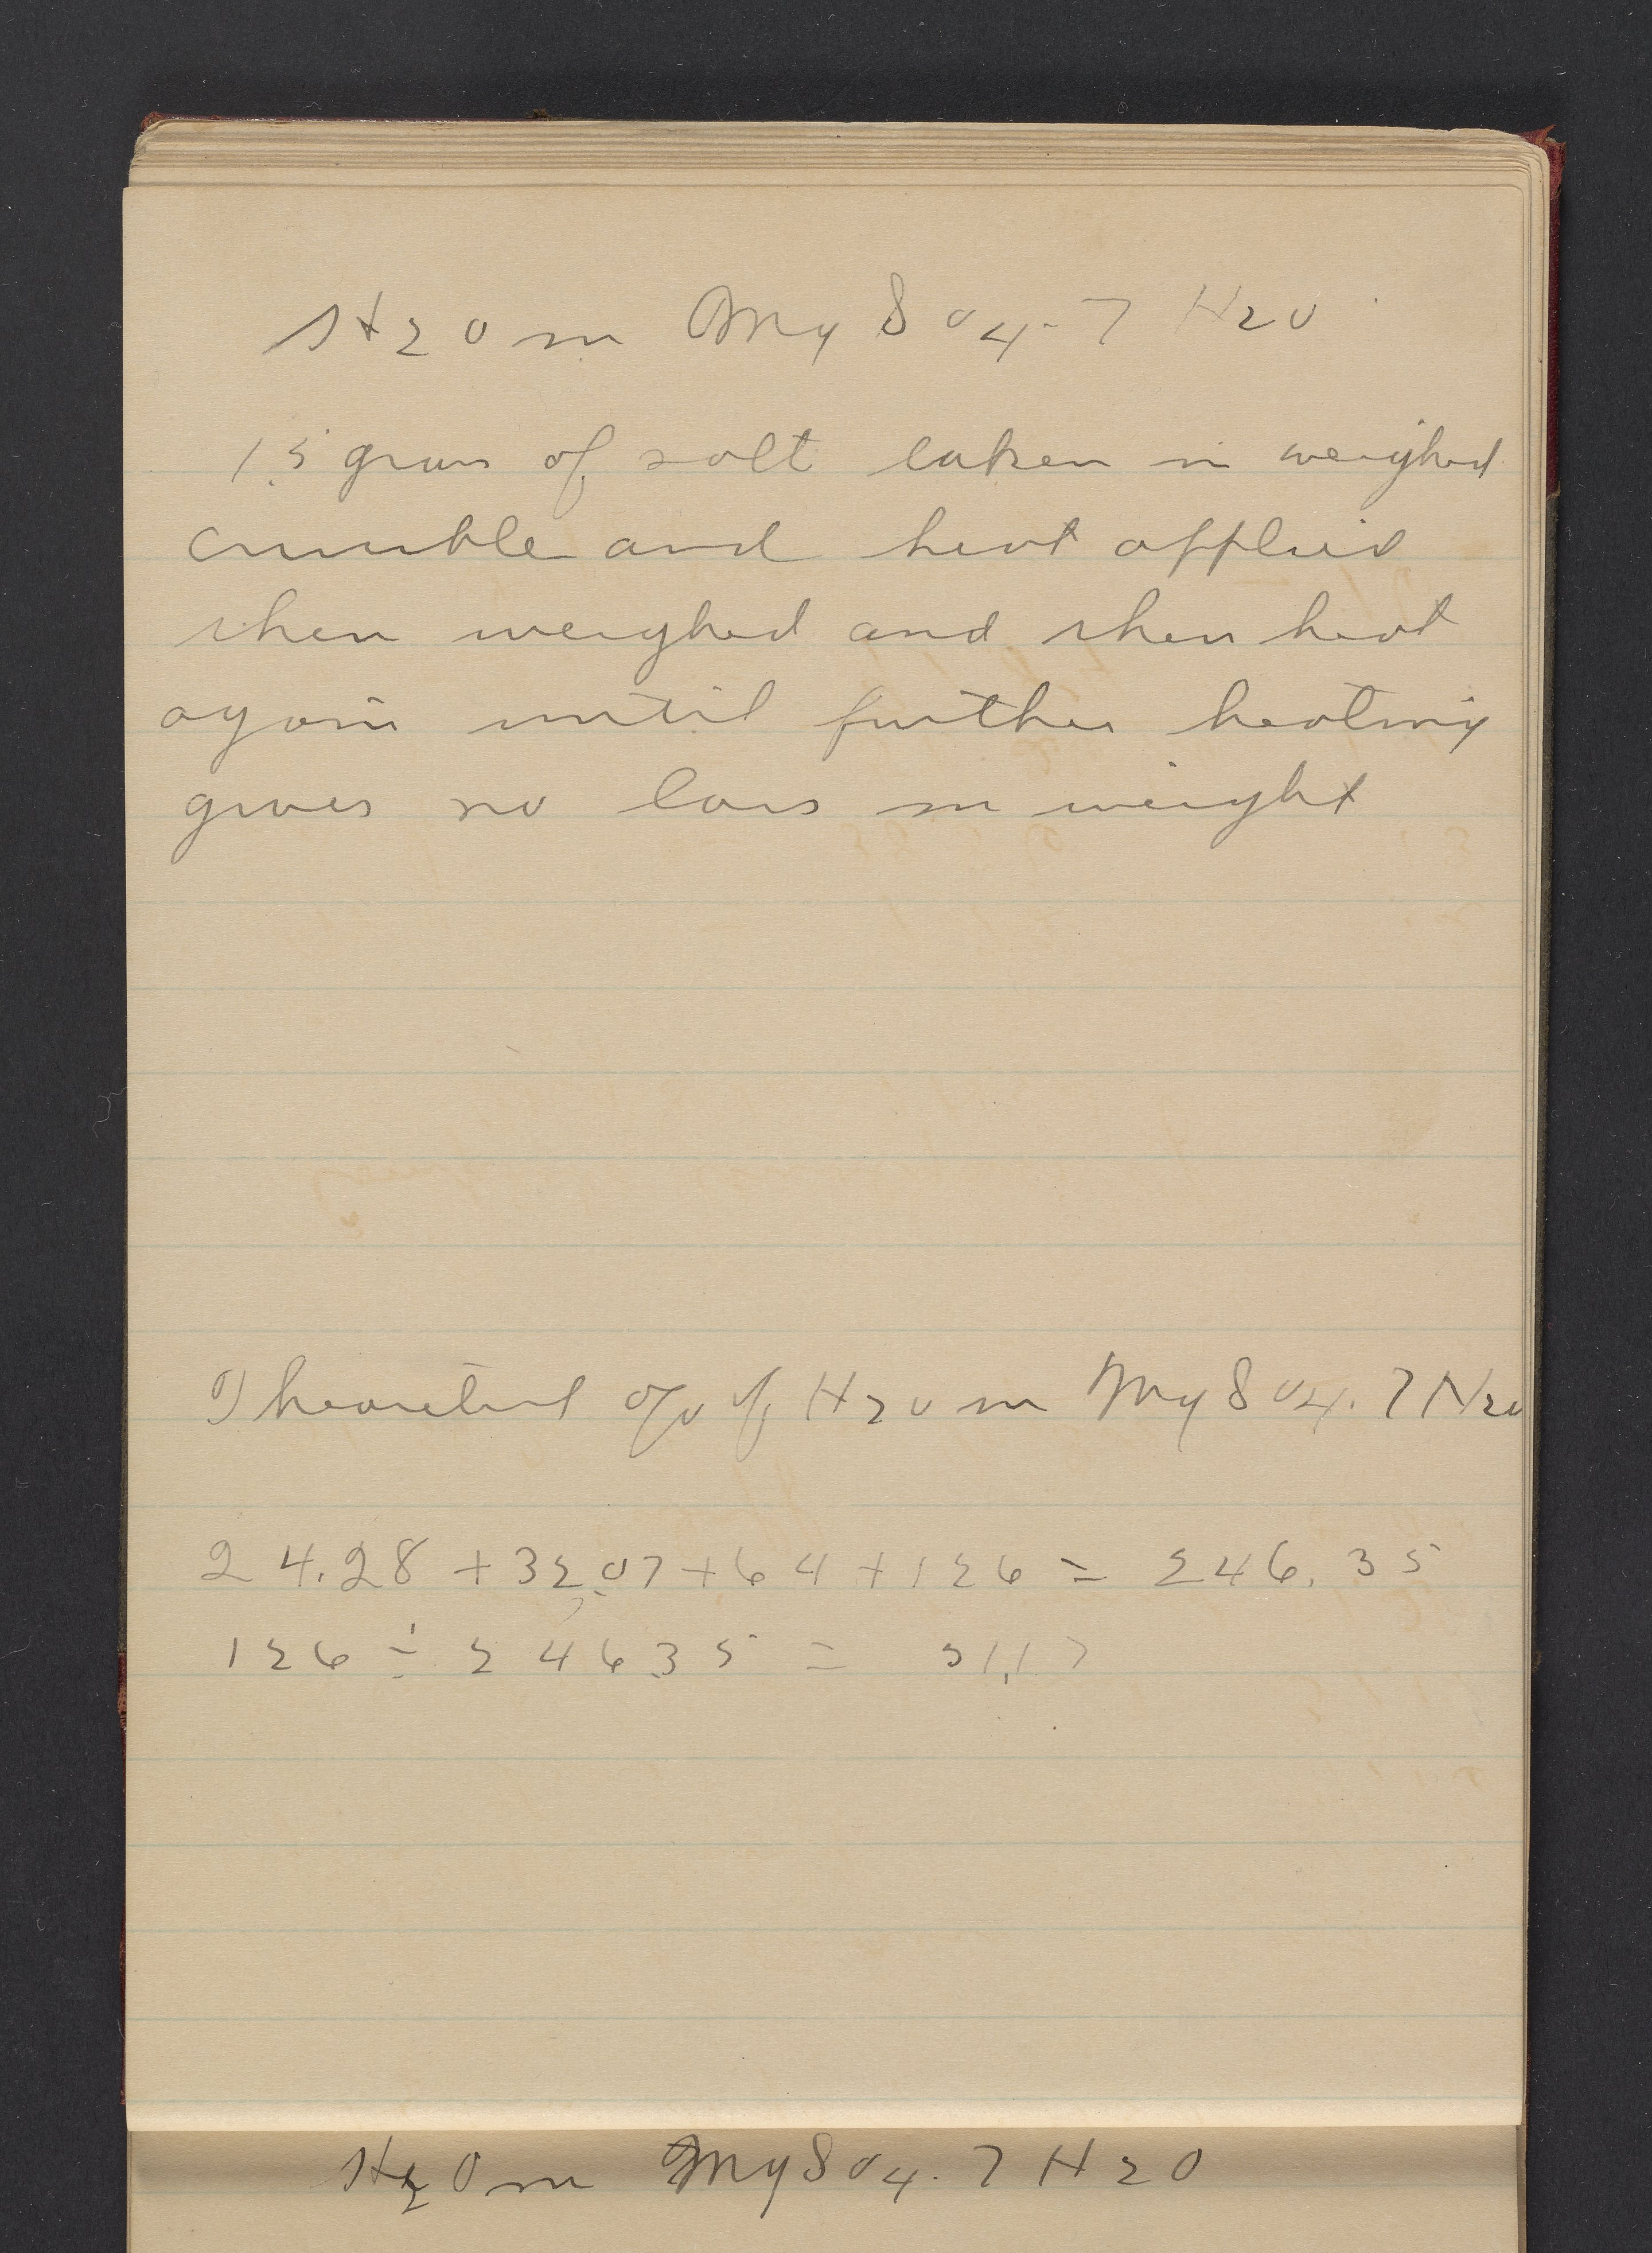 H2O in MgSO4.7H2O
1.5 gram of salt taken in weighed
crucible and heat applied
then weighed and then heat
again until further heating
gives no loss in weight
Theoretical % of H2O in MgSO4.7H2O
24.28 + 32.07 + 64 + 126 = 246.35
126 ÷ 246.35 = 51.17
H2O in MgSO4.7H2O